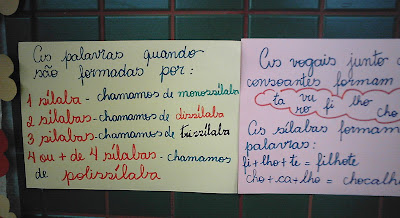 As palavras quando
são formadas por:
1 sílaba - chamamos de monossílaba
2 sílabas - chamamos de dissílaba
3 sílabas - chamamos de trissílaba
4 ou + de 4 sílabas - chamamos
de polissílaba
As vogais junto a
consoantes formam
ta vu
xo fi lho
cho
As sílabas formam
palavras:
fi + lho + te = filhote
cho + ca + lho = chocalho